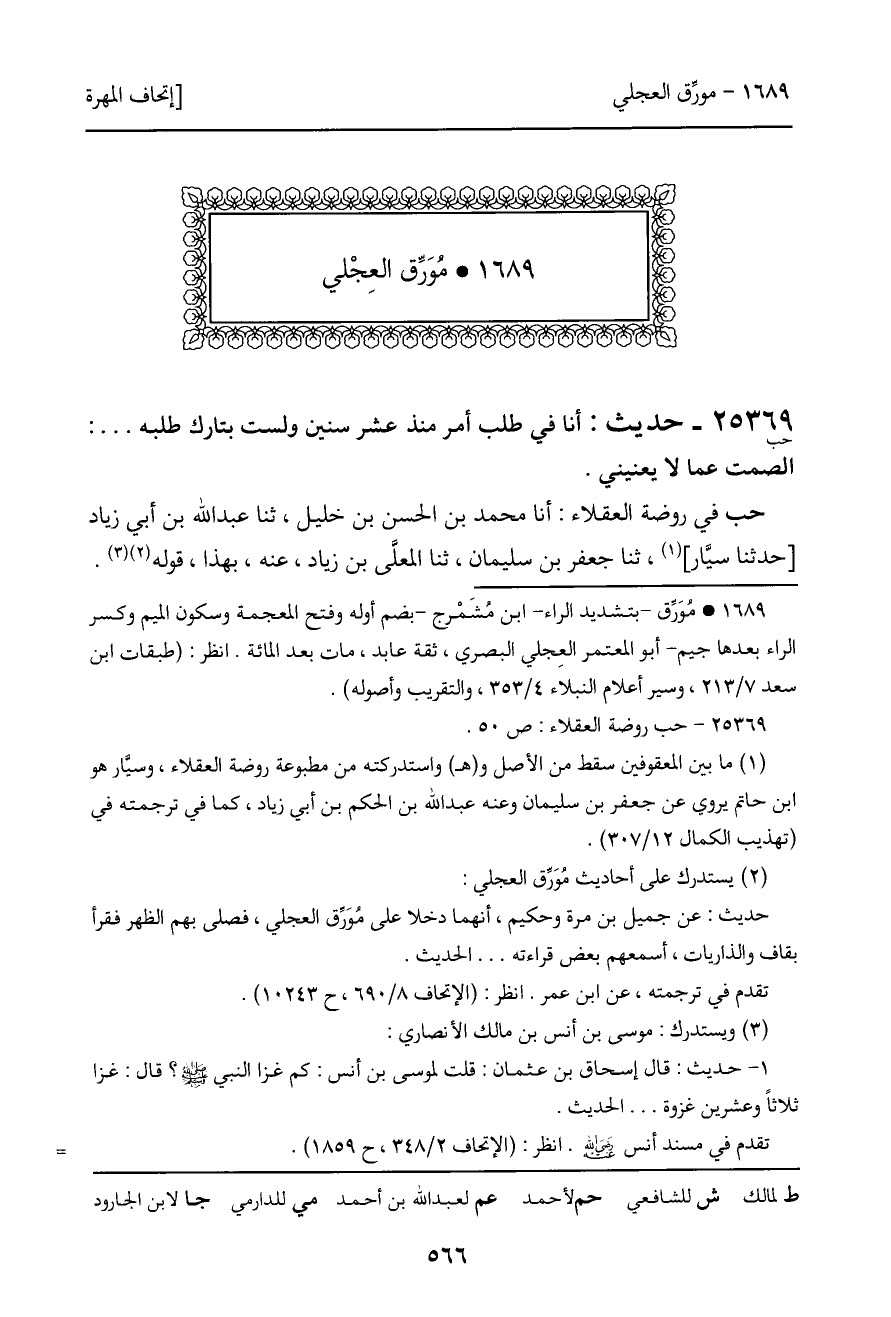 ١٦٨٩ - مورِّق العجلي
[إتحاف المهرة
١٦٨٩ ● مُوَرِّق العِجْلي
٢٥٣٦٩ ـ حديث : أنا في طلب أمر منذ عشر سنين ولست بتارك طلبه . . . :
حب
الصمت عما لا يعنيني .
حب في روضة العقلاء : أنا محمد بن الحسن بن خليل ، ثنا عبدالله بن أبي زياد
[حدثنا سيَّار](١) ، ثنا جعفر بن سليمان ، ثنا المعلَّى بن زياد ، عنه ، بهذا ، قوله(٢)(٣) .
١٦٨٩ ● مُوَرِّق -بتشديد الراء- ابن مُشَمْرِج -بضم أوله وفتح المعجمة وسكون الميم وكسر
الراء بعدها جيم- أبو المعتمر العِجلي البصري ، ثقة عابد ، مات بعد المائة . انظر : (طبقات ابن
سعد ٢١٣/٧ ، وسير أعلام النبلاء ٣٥٣/٤ ، والتقريب وأصوله) .
٢٥٣٦٩ - حب روضة العقلاء : ص ٥٠ .
(١) ما بين المعقوفين سقط من الأصل و(هـ) واستدركته من مطبوعة روضة العقلاء ، وسيَّار هو
ابن حاتم يروي عن جعفر بن سليمان وعنه عبدالله بن الحكم بن أبي زياد ، كما في ترجمته في
(تهذيب الكمال ٣٠٧/١٢) .
(٢) يستدرك على أحاديث مُوَرِّق العجلي :
حديث : عن جميل بن مرة وحكيم ، أنهما دخلا على مُوَرِّق العجلي ، فصلى بهم الظهر فقرأ
بقاف والذاريات ، أسمعهم بعض قراءته . . . الحديث .
تقدم في ترجمته ، عن ابن عمر . انظر : (الإتحاف ٦٩٠/٨ ، ح ١٠٢٤٣) .
(٣) ويستدرك : موسى بن أنس بن مالك الأنصاري :
١- حديث : قال إسحاق بن عثمان : قلت لموسى بن أنس : كم غزا النبي ﷺ؟ قال : غزا
ثلاثاً وعشرين غزوة . . . الحديث .
تقدم في مسند أنس رضي الله عنه . انظر : (الإتحاف ٣٤٨/٢ ، ح ١٨٥٩) .
=
ط لمالك ش للشافعي حم لأحمد عم لعبدالله بن أحمد مي للدارمي جا لابن الجارود
٥٦٦